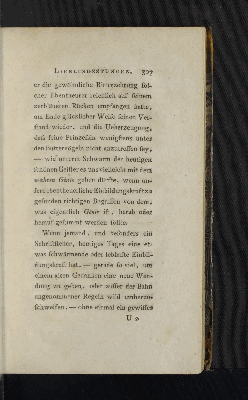 LIEBLINGSSTUNGEN. 307
er die gewöhnliche Ritterzehrung sol-
cher Abentheurer reichlich auf seinem
zerbläueten Rücken empfangen hatte,
am Ende glücklicher Weise seinen Ver-
stand wieder, und die Ueberzeugung,
daß seine Prinzessin wenigstens unter
den Buttervögeln nicht anzutreffen sey,
— wie unsrer Schwarm der heutigen
schönen Geister es uns vielleicht mit dem
wahren Genie gehen dürfte, wenn un-
sre abentheuerliche Einbildungskraft zu
gesunden richtigen Begriffen von dem,
was eigentlich Genie ist, herab oder
herauf gestimmt werden sollte.
Wenn jemand, und besonders ein
Schriftsteller, heutiges Tages eine et-
was schwärmende oder lebhafte Einbil-
dungskraft hat, — gerade so viel, um
einem alten Gedanken eine neue Wen-
dung zu geben, oder ausser der Bahn
angenommener Regeln wild umherzu-
schweifen, — ohne einmal ein gewisses
U 2